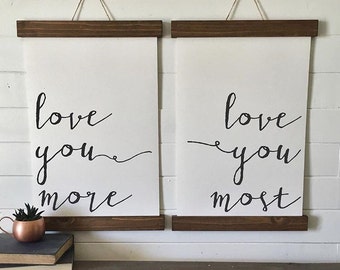 love
you
more
love
you
most